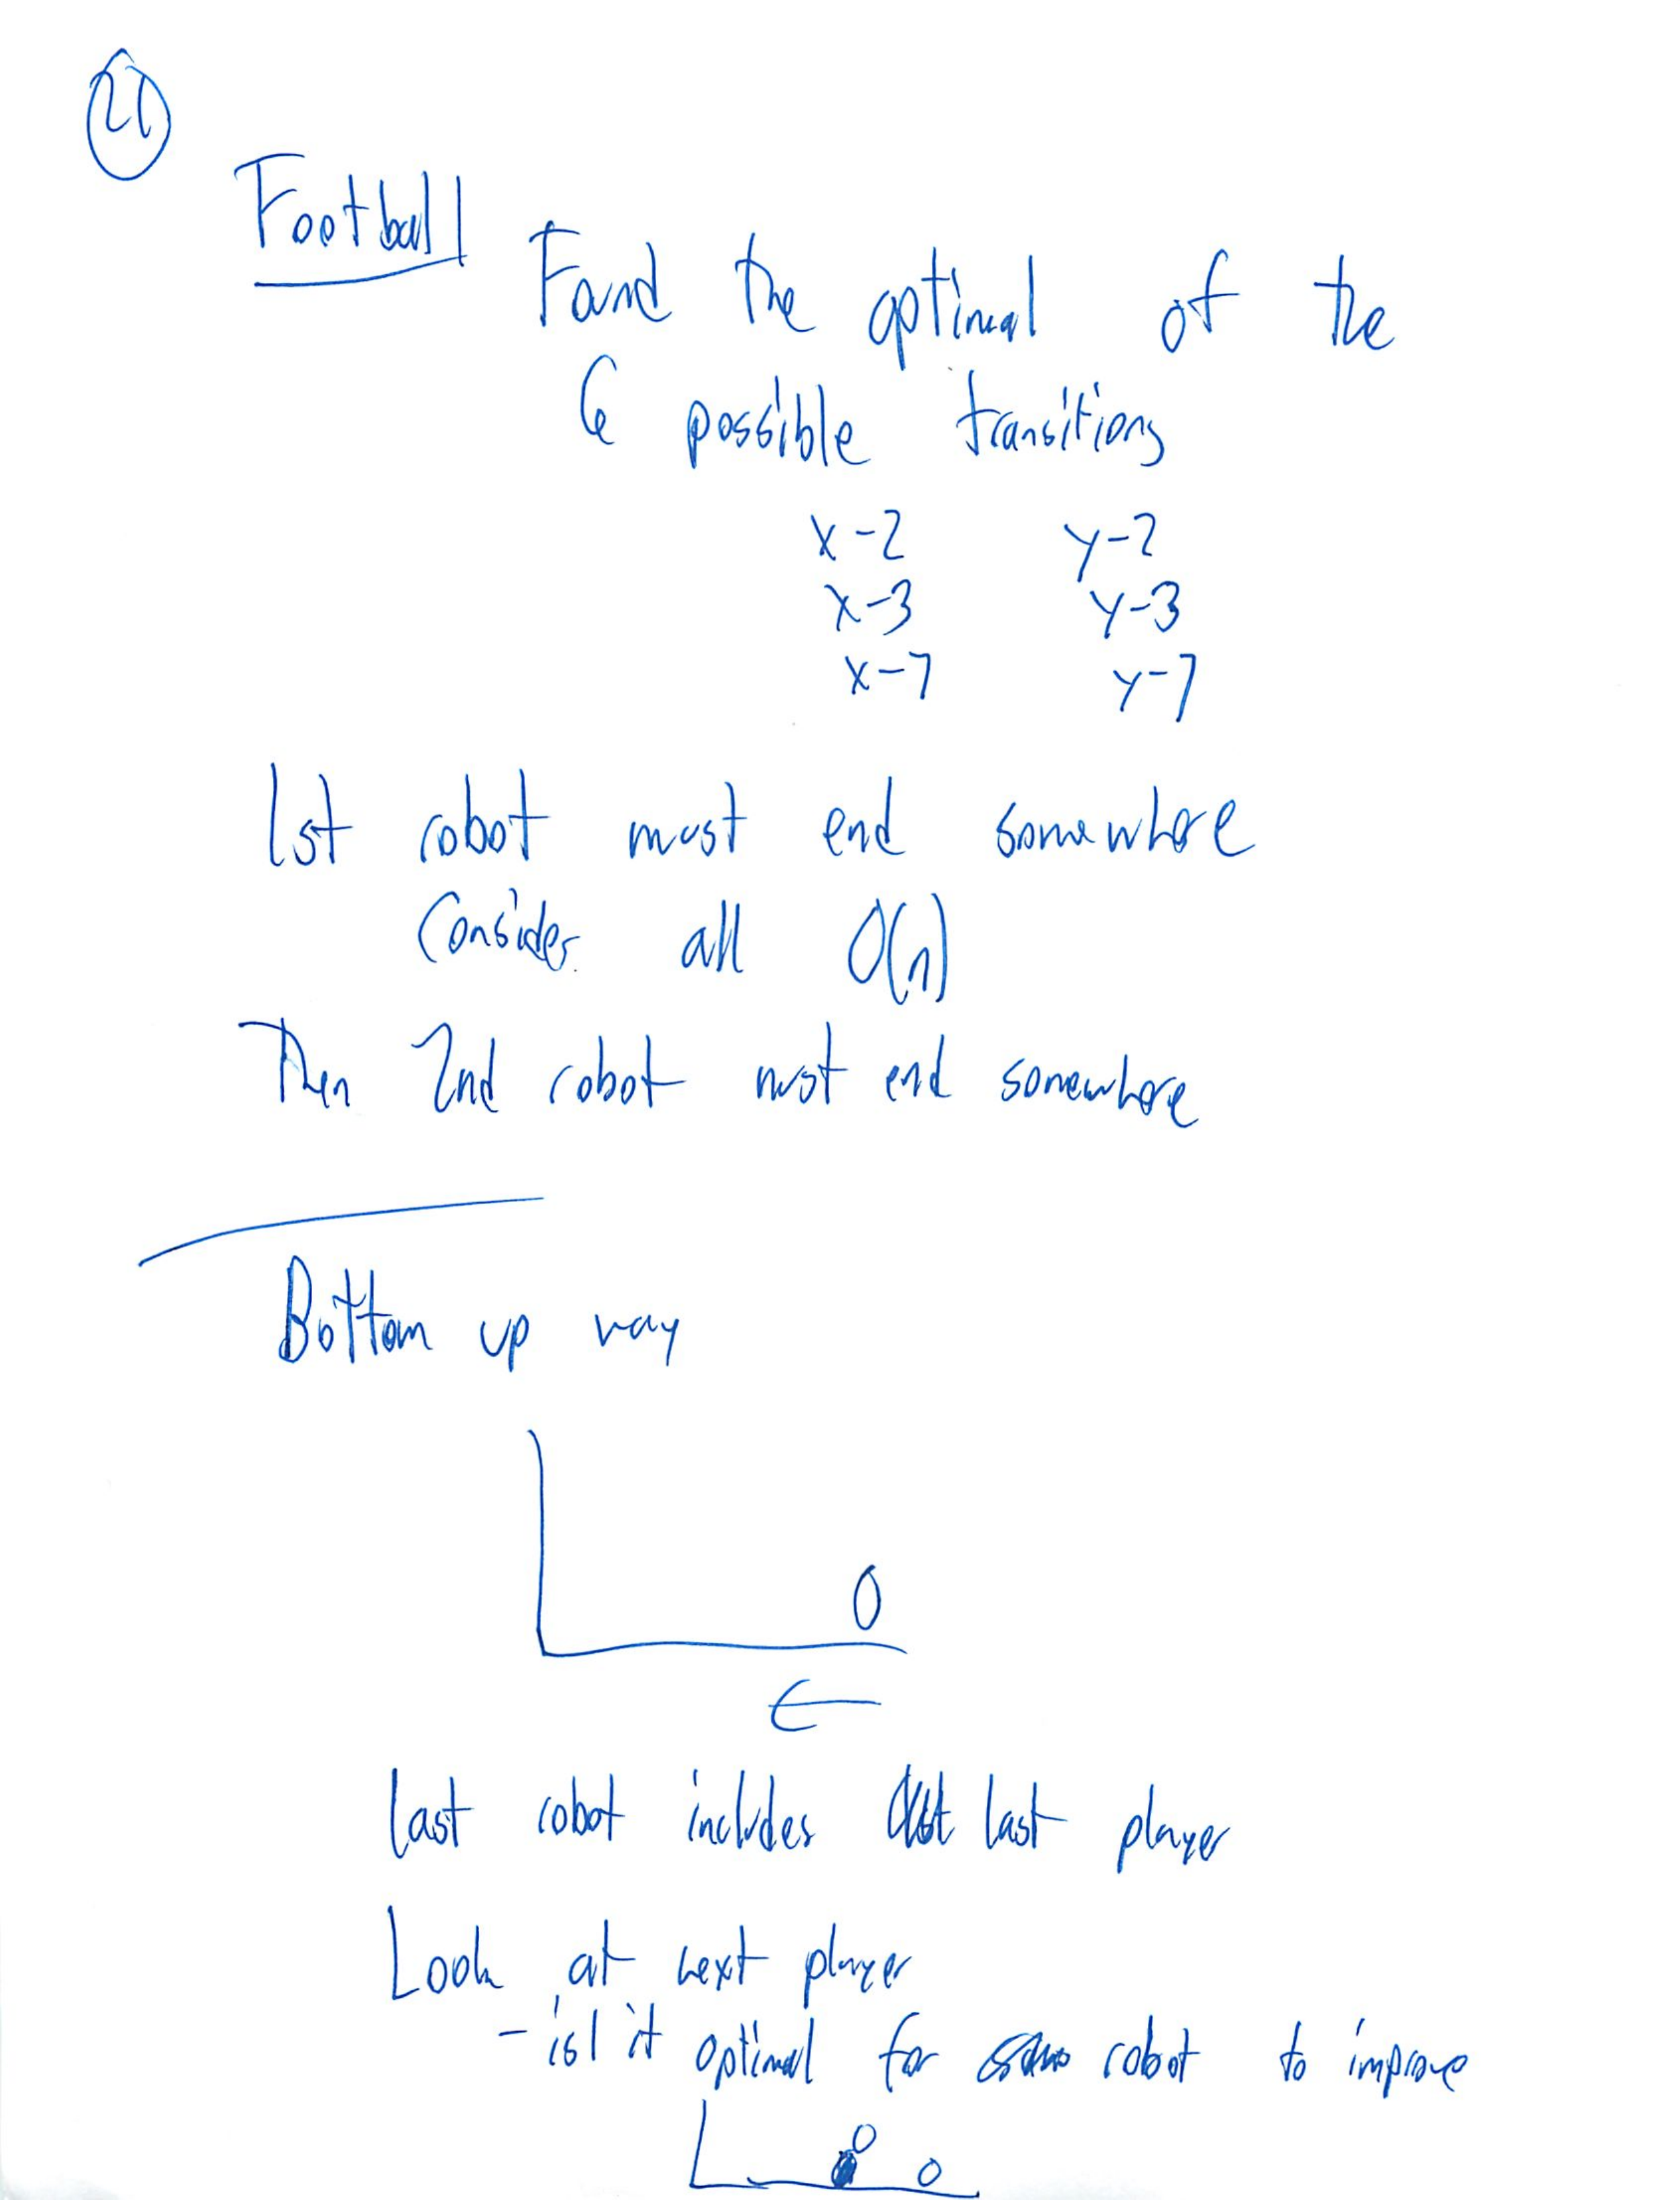 21
Football
Found the optimal of the
6 possible transitions
x-2 y-2
x-3 y-3
x-7 y-7
1st robot must end somewhere
Consider all O(n)
Then 2nd robot must end somewhere
Bottom up way
0
←
last robot includes last player
Look at next player
- is it optimal for same robot to improve
0 0